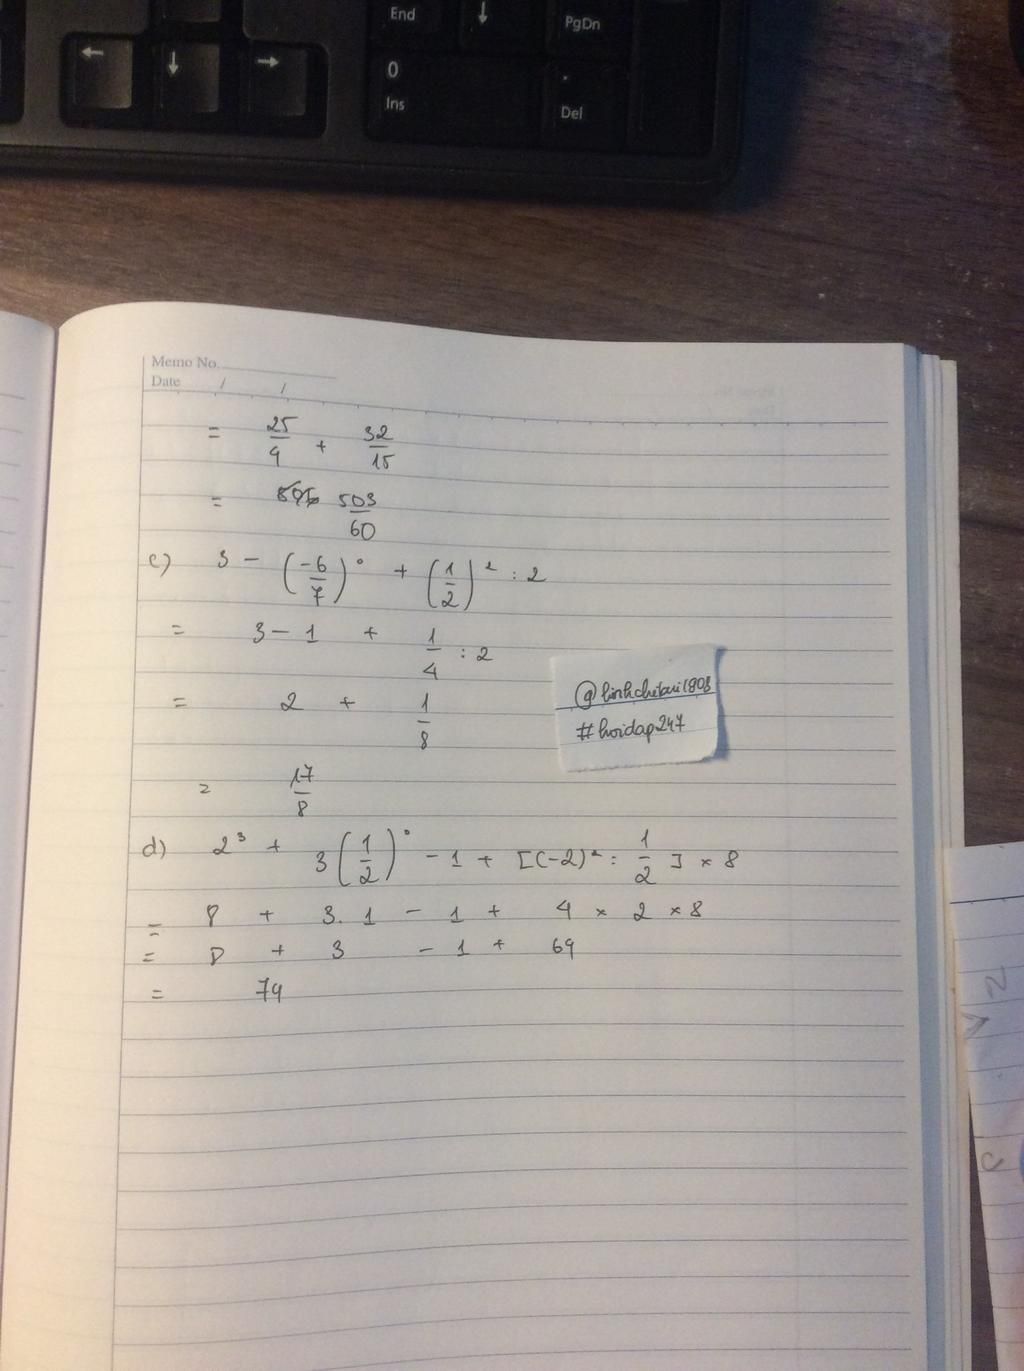 End ↓ PgDn
← ↓ → 0 .
Ins Del
Memo No.
Date / /
= 25/4 + 32/15
= 503/60
c) 3 - (-6/7)⁰ + (1/2)² : 2
= 3 - 1 + 1/4 : 2
= 2 + 1/8
= 17/8
@linhchibui1808
#hoidap247
d) 2³ + 3(1/2)⁰ - 1 + [(-2)² : 1/2] × 8
= 8 + 3.1 - 1 + 4 × 2 × 8
= 8 + 3 - 1 + 64
= 74